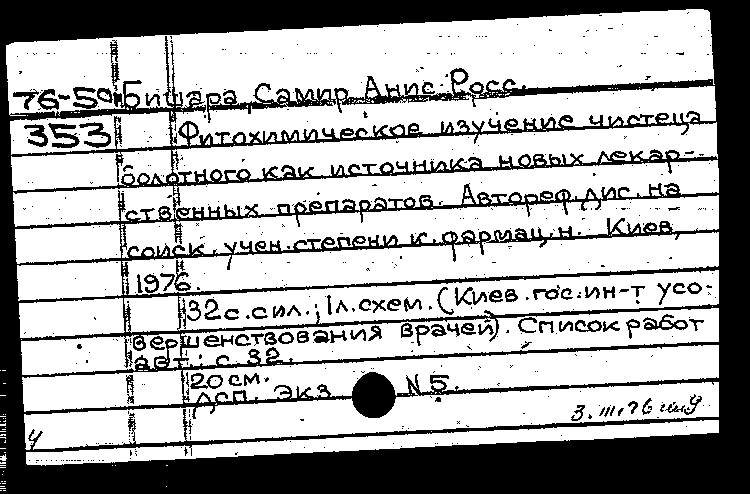 76-59 Бишара Самир Анис Росс.
353 Фитохимическое изучение чистеца
болотного как источника новых лекар-
ственных препаратов. Автореф. дис. на
соиск. учен. степени к. фармац. н. Киев,
1976.
32 с. с ил.; 1 л. схем. (Киев. гос. ин-т усо-
вершенствования врачей). Список работ
авт.: с. 32.
20 см.
ДСП. Экз N 5.
3.III.76
ч